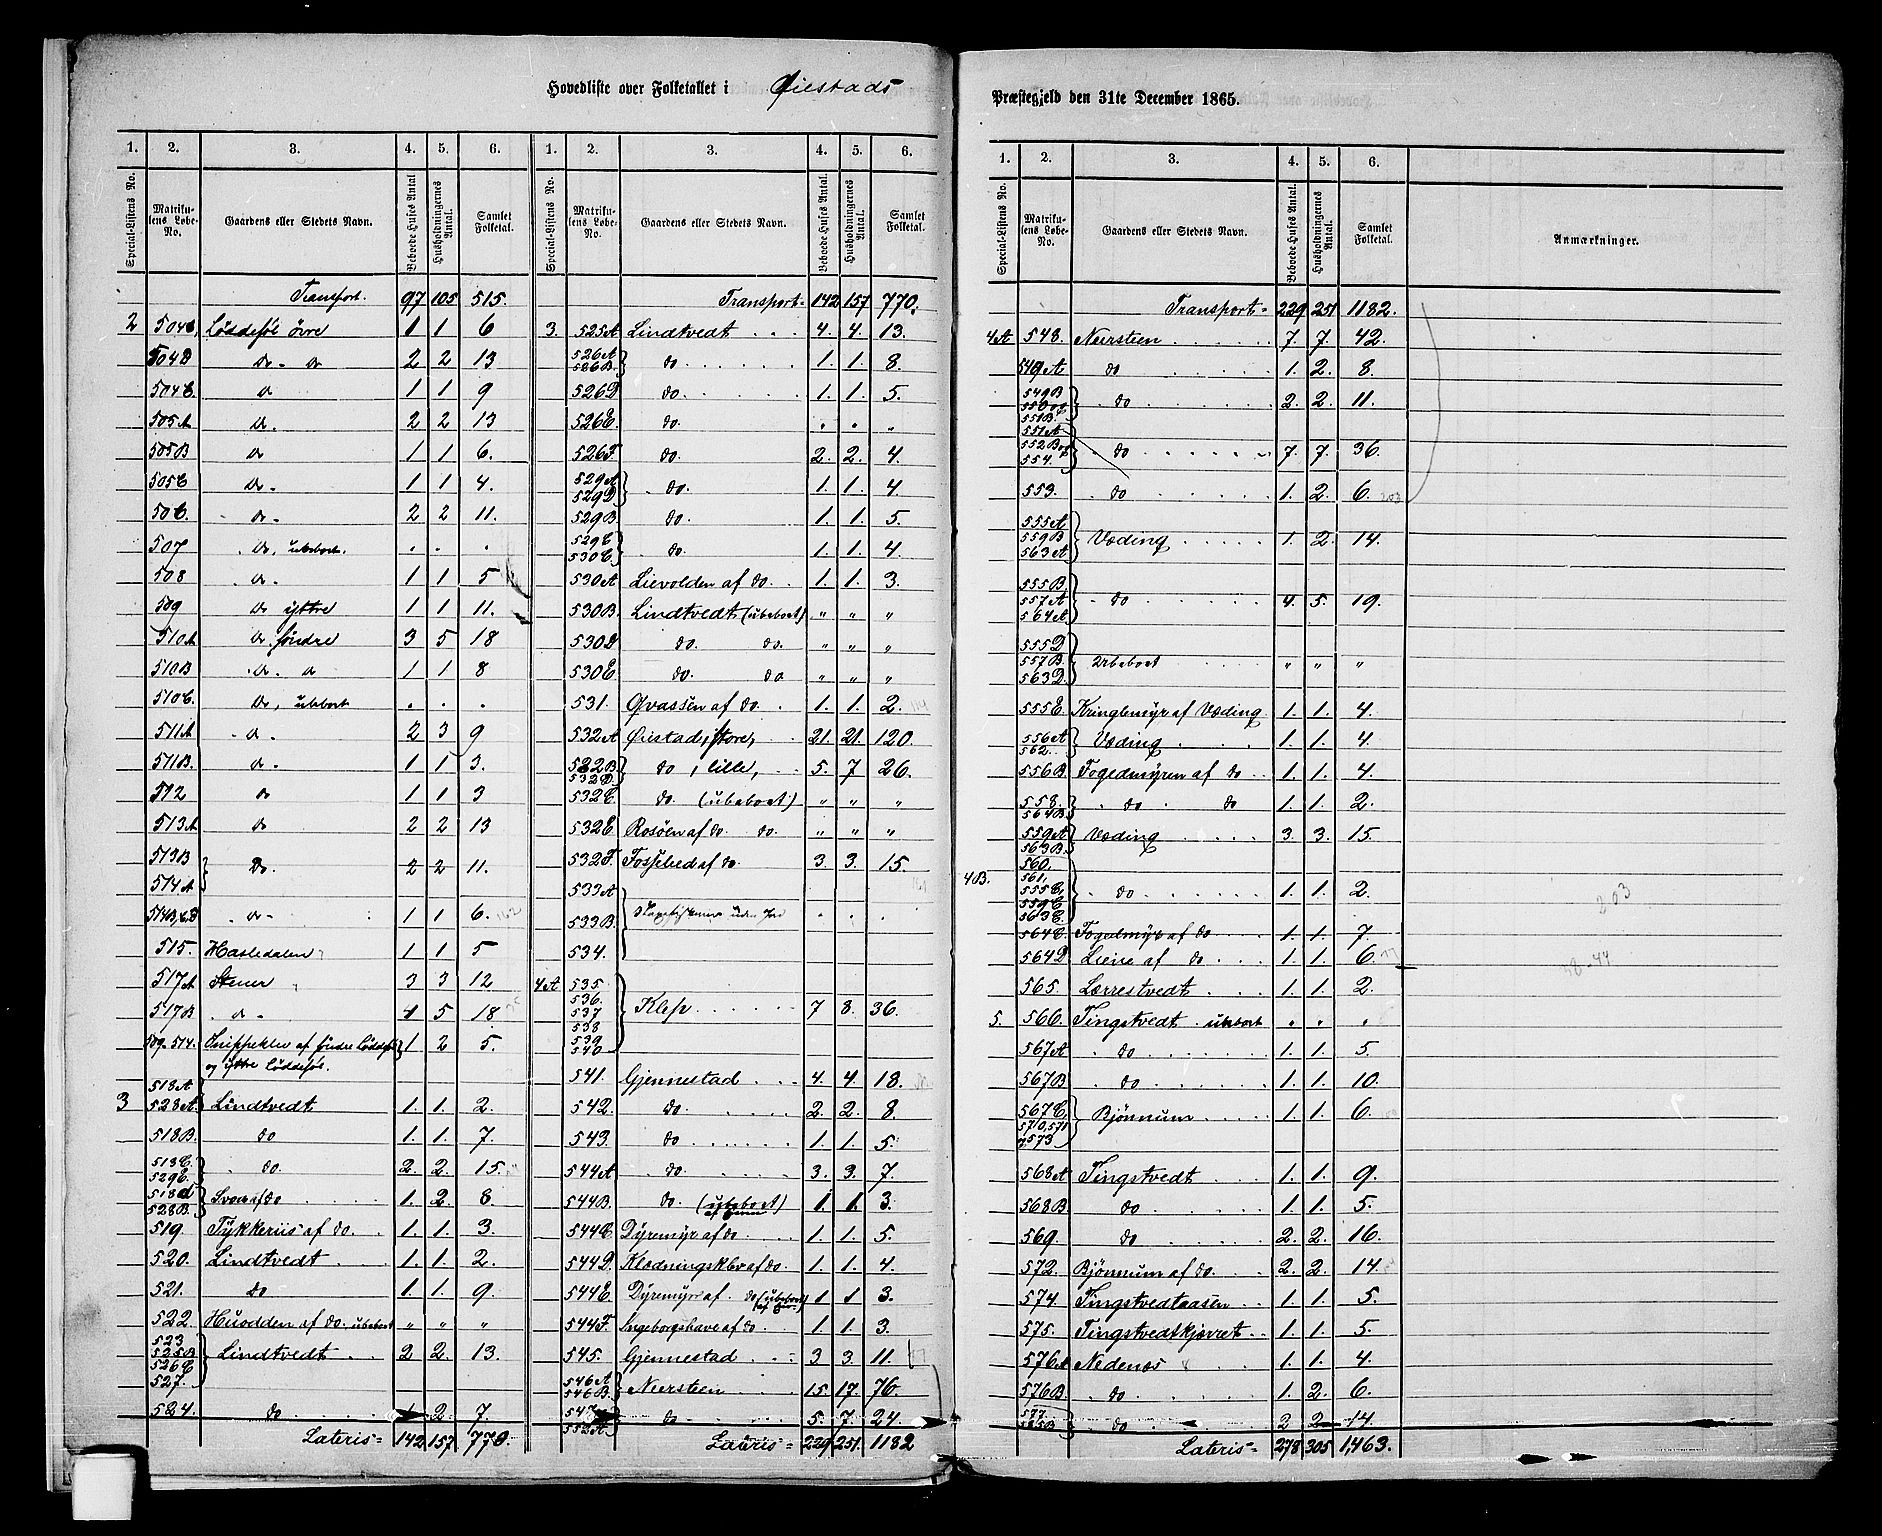 Hovedliste over Folketallet i Øiestads
Præstegjeld den 31te December 1865.
1. 2. 3. 4. 5. 6.
Special-Listens No. Matrikulens Løbe-No. Gaardens eller Stedets Navn. Beboede Huses Antal. Husholdningernes Antal. Samlet Folketal.
Transport. 97 105 515.
2 504C, Løddesøl övre 1 1 6
504D do - do 2 2 13
504E. do 1 1 9
505A do. 2 2 13
505B do 1 1 6.
505C do. 1 1 4.
506. do. 2 2 11.
507 do, ubeboet. . . .
508 do. 1 1 5
509 do yttre 1 1 11.
510A do. søndre 3 5 18
510B do. do 1 1 8
510C. do, ubeboet . . .
511A do. 2 3 9
511B. do. 1 1 3.
512 do 1 1 3
513A do 2 2 13
513B
514A do. 2 2 11.
514B,C,D do. 1 1 6.
515. Hasledalen 1 1 5
517A Stener 3 3 12
517B do. 4 5 18
509-514. af søndre Løddesøl 1 2 5.
og yttre Løddesøl.
518A
3 528A Lindtvedt 1. 1. 2.
518B. do 1. 1. 7.
518C.
529C. do. 2. 2. 15.
518d
528B. Svom af do 1. 2. 8
519. Tykkeriis af do. 1. 1. 3.
520. Lindtvedt 1. 1. 2.
521. do 1. 1. 9.
522. Huodden af do. ubeboet " " "
523
525B
526C
527. Lindtvedt 2 2. 13.
524. do 1 2. 7.
Lateris = 142 157 770.
1. 2. 3. 4. 5. 6.
Special-Listens No. Matrikulens Løbe-No. Gaardens eller Stedets Navn. Beboede Huses Antal. Husholdningernes Antal. Samlet Folketal.
Transport = 142 157 770.
3. 525A Lindtvedt 4. 4. 13.
526A
526B. do 1. 1. 8.
526D do. 1. 1. 5.
526E. do. " " "
526F. do. 2. 2. 4.
529A
529D do. 1. 1. 4.
529B. do. 1. 1. 5.
529E
530C. do. 1. 1. 4
530A Lievolden af do. 1. 1. 3.
530B. Lindtvedt (ubeboet) " " "
530D do. do. " " "
530E do. do " " "
531. Qvassen af do. 1. 1. 2.
532A Øiestad, store, 21. 21. 120.
532B
532D. do, lille, 5. 7 26.
532C. do. (ubeboet) " " "
532E. Rosöen af do. do. " " "
532F. Fosselied af do. 3. 3. 15.
533A
533B. . . .
534.
4A 535
536.
537
538
539
540 Klep 7 8. 36.
541. Gjennestad 4. 4. 18.
542. do. 2. 2. 8.
543. do 1. 1. 5.
544A do. 3. 3. 7.
544B. do (ubeboet) 1 1. 3.
544C. Dyremyr af do. 1. 1. 5.
544D. Klædningskler af do. 1. 1. 4.
544E. Dyremyr af do (ubeboet) 1 1 3.
544F. Ingeborgshave af do. 1. 1. 3.
545. Gjennestad 3 3. 11.
546A
546B. Neersteen 15. 17. 76.
547
552A. do 5. 7. 24.
Lateris = 229 251. 1182
1. 2. 3. 4. 5. 6.
Special-Listens No. Matrikulens Løbe-No. Gaardens eller Stedets Navn. Beboede Huses Antal. Husholdningernes Antal. Samlet Folketal. Anmærkninger.
Transport = 229 251 1182.
4A 548. Neersteen 7. 7. 42.
549A do 1. 2. 8.
549B
550 og
551B. do 2. 2. 11.
551A
552B og
554. do 7. 7. 36.
553. do 1. 2. 6. 203
555A
559B
563A Væding 1. 2. 14.
555B.
557A
564A do 4. 5. 19.
555D
557B
563D. Ubeboet " " "
555E. Kringlemyr af Væding 1. 1. 4.
556A
562. Væding 1. 1. 4.
556B. Fogedmyren af do 1. 1. 4.
558.
564B. do do 1. 1. 2.
559A
563B. Væding 3. 3. 15.
4B. 560.
561,
555C,
559C
563C. do 1. 1. 2.
203
564C. Fogedmyr af do 1. 1. 7.
564D Liene af do 1. 1. 6.
565. Lærrestvedt 1. 1. 2.
5. 566. Tingstvedt. ubeboet " " "
567A do 1. 1. 5.
567B do 1. 1. 10.
567C.
570, 571
og 573 Bjönnum 1. 1. 6.
568A Tingstvedt 1. 1. 9.
568B. do 1. 1. 5.
569. do 2. 2. 16.
572. Bjönnum af do. 2. 2. 14.
574. Tingstvedtaasen 1. 1. 5.
575. Tingstvedtkjærret 1. 1. 5.
576A Nedenæs 1. 1. 4.
576B. do. 1. 2. 6.
577 do 2 2 14.
Lateris = 278 305 1,463.